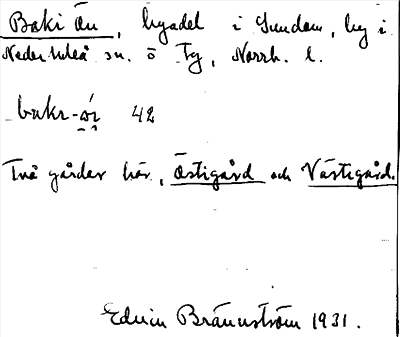 Baki Ån, byadel i Sundom, by i
Nederluleå sn. ö Ty, Norrb. l.
bakr-ór 42
Två gårdar här, Östigård och Västigård.
Edvin Brännström 1931.